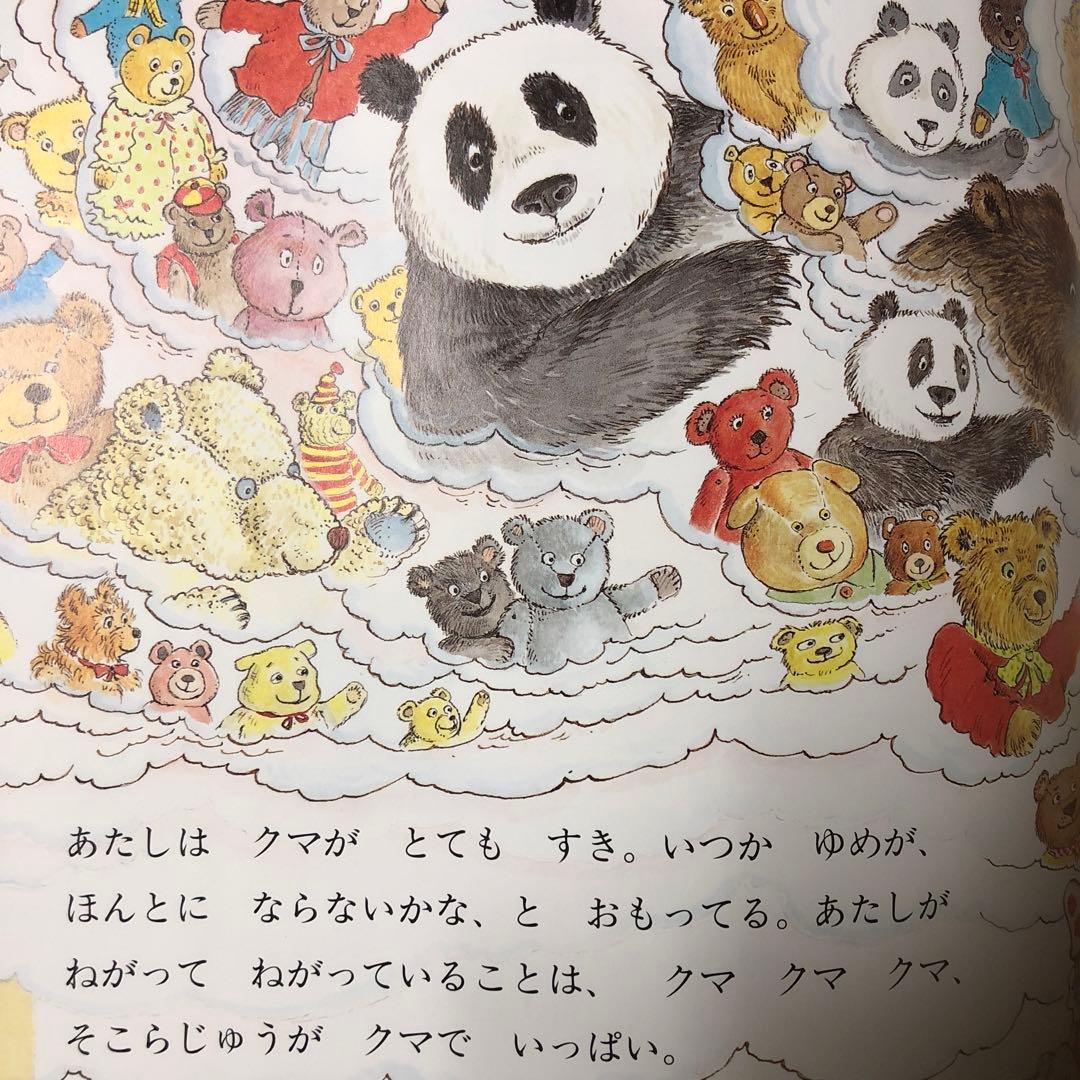 あたしは　クマが　とても　すき。いつか　ゆめが、
ほんとに　ならないかな、と　おもってる。あたしが
ねがって　ねがっていることは、　クマ　クマ　クマ、
そこらじゅうが　クマで　いっぱい。